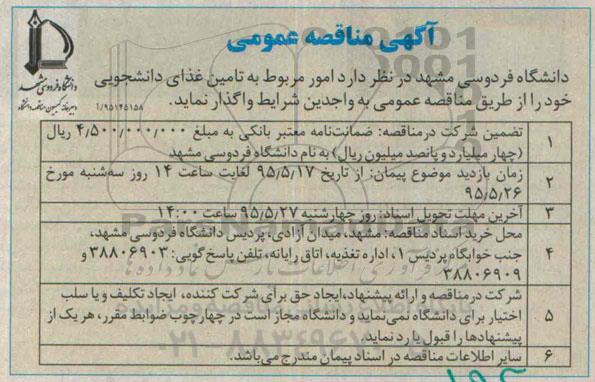 آگهی مناقصه عمومی
دانشگاه فردوسی مشهد
دبیرخانه کمیسیون معاملات دانشگاه
۱/۹۵۱۴۵۱۵۸
دانشگاه فردوسی مشهد در نظر دارد امور مربوط به تامین غذای دانشجویی
خود را از طریق مناقصه عمومی به واجدین شرایط واگذار نماید.
۱ تضمین شرکت در مناقصه: ضمانت‌نامه معتبر بانکی به مبلغ ۴٫۵۰۰٫۰۰۰٫۰۰۰ ریال
(چهار میلیارد و پانصد میلیون ریال) به نام دانشگاه فردوسی مشهد
۲ زمان بازدید موضوع پیمان: از تاریخ ۹۵٫۵٫۱۷ لغایت ساعت ۱۴ روز سه‌شنبه مورخ
۹۵٫۵٫۲۶
۳ آخرین مهلت تحویل اسناد: روز چهارشنبه ۹۵٫۵٫۲۷ ساعت ۱۴:۰۰
۴ محل خرید اسناد مناقصه: مشهد، میدان آزادی، پردیس دانشگاه فردوسی مشهد،
جنب خوابگاه پردیس ۱، اداره تغذیه، اتاق رایانه، تلفن پاسخ گویی: ۳۸۸۰۶۹۰۳ و
۳۸۸۰۶۹۰۹
۵ شرکت در مناقصه و ارائه پیشنهاد، ایجاد حق برای شرکت کننده، ایجاد تکلیف و یا سلب
اختیار برای دانشگاه نمی‌نماید و دانشگاه مجاز است در چهارچوب ضوابط مقرر، هر یک از
پیشنهادها را قبول یا رد نماید.
۶ سایر اطلاعات مناقصه در اسناد پیمان مندرج می‌باشد.
۰۲۱-۸۸۳۴۹۶۷۰